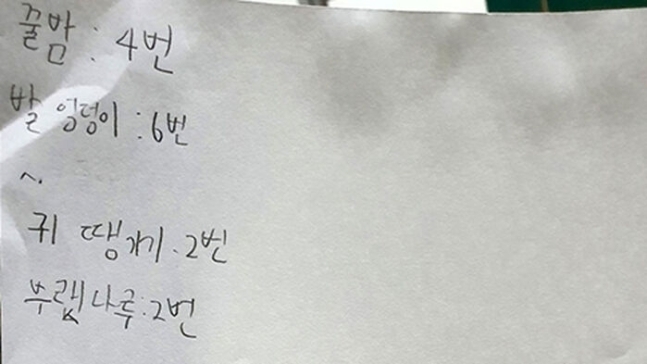 꿀밤 : 4번
발 엉덩이 : 6번
~.
귀 땡기기. 2번
뿌랩나루:2번